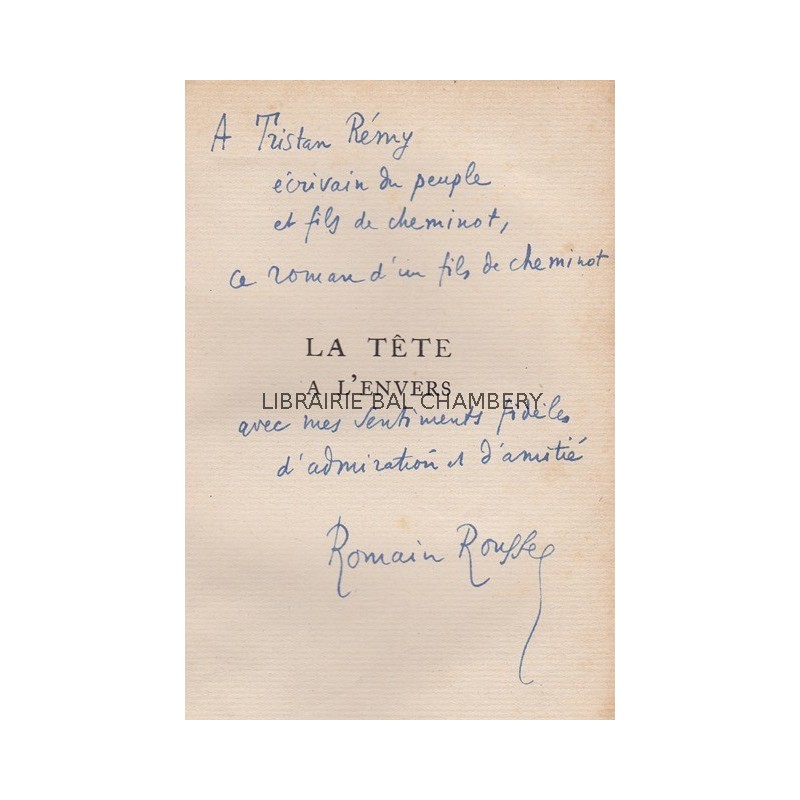 A Tristan Rémy
écrivain du peuple
et fils de cheminot,
ce roman d'un fils de cheminot
LA TÊTE
A L'ENVERS
LIBRAIRIE BAL CHAMBERY
avec mes sentiments fidèles
d'admiration et d'amitié
Romain Roussel